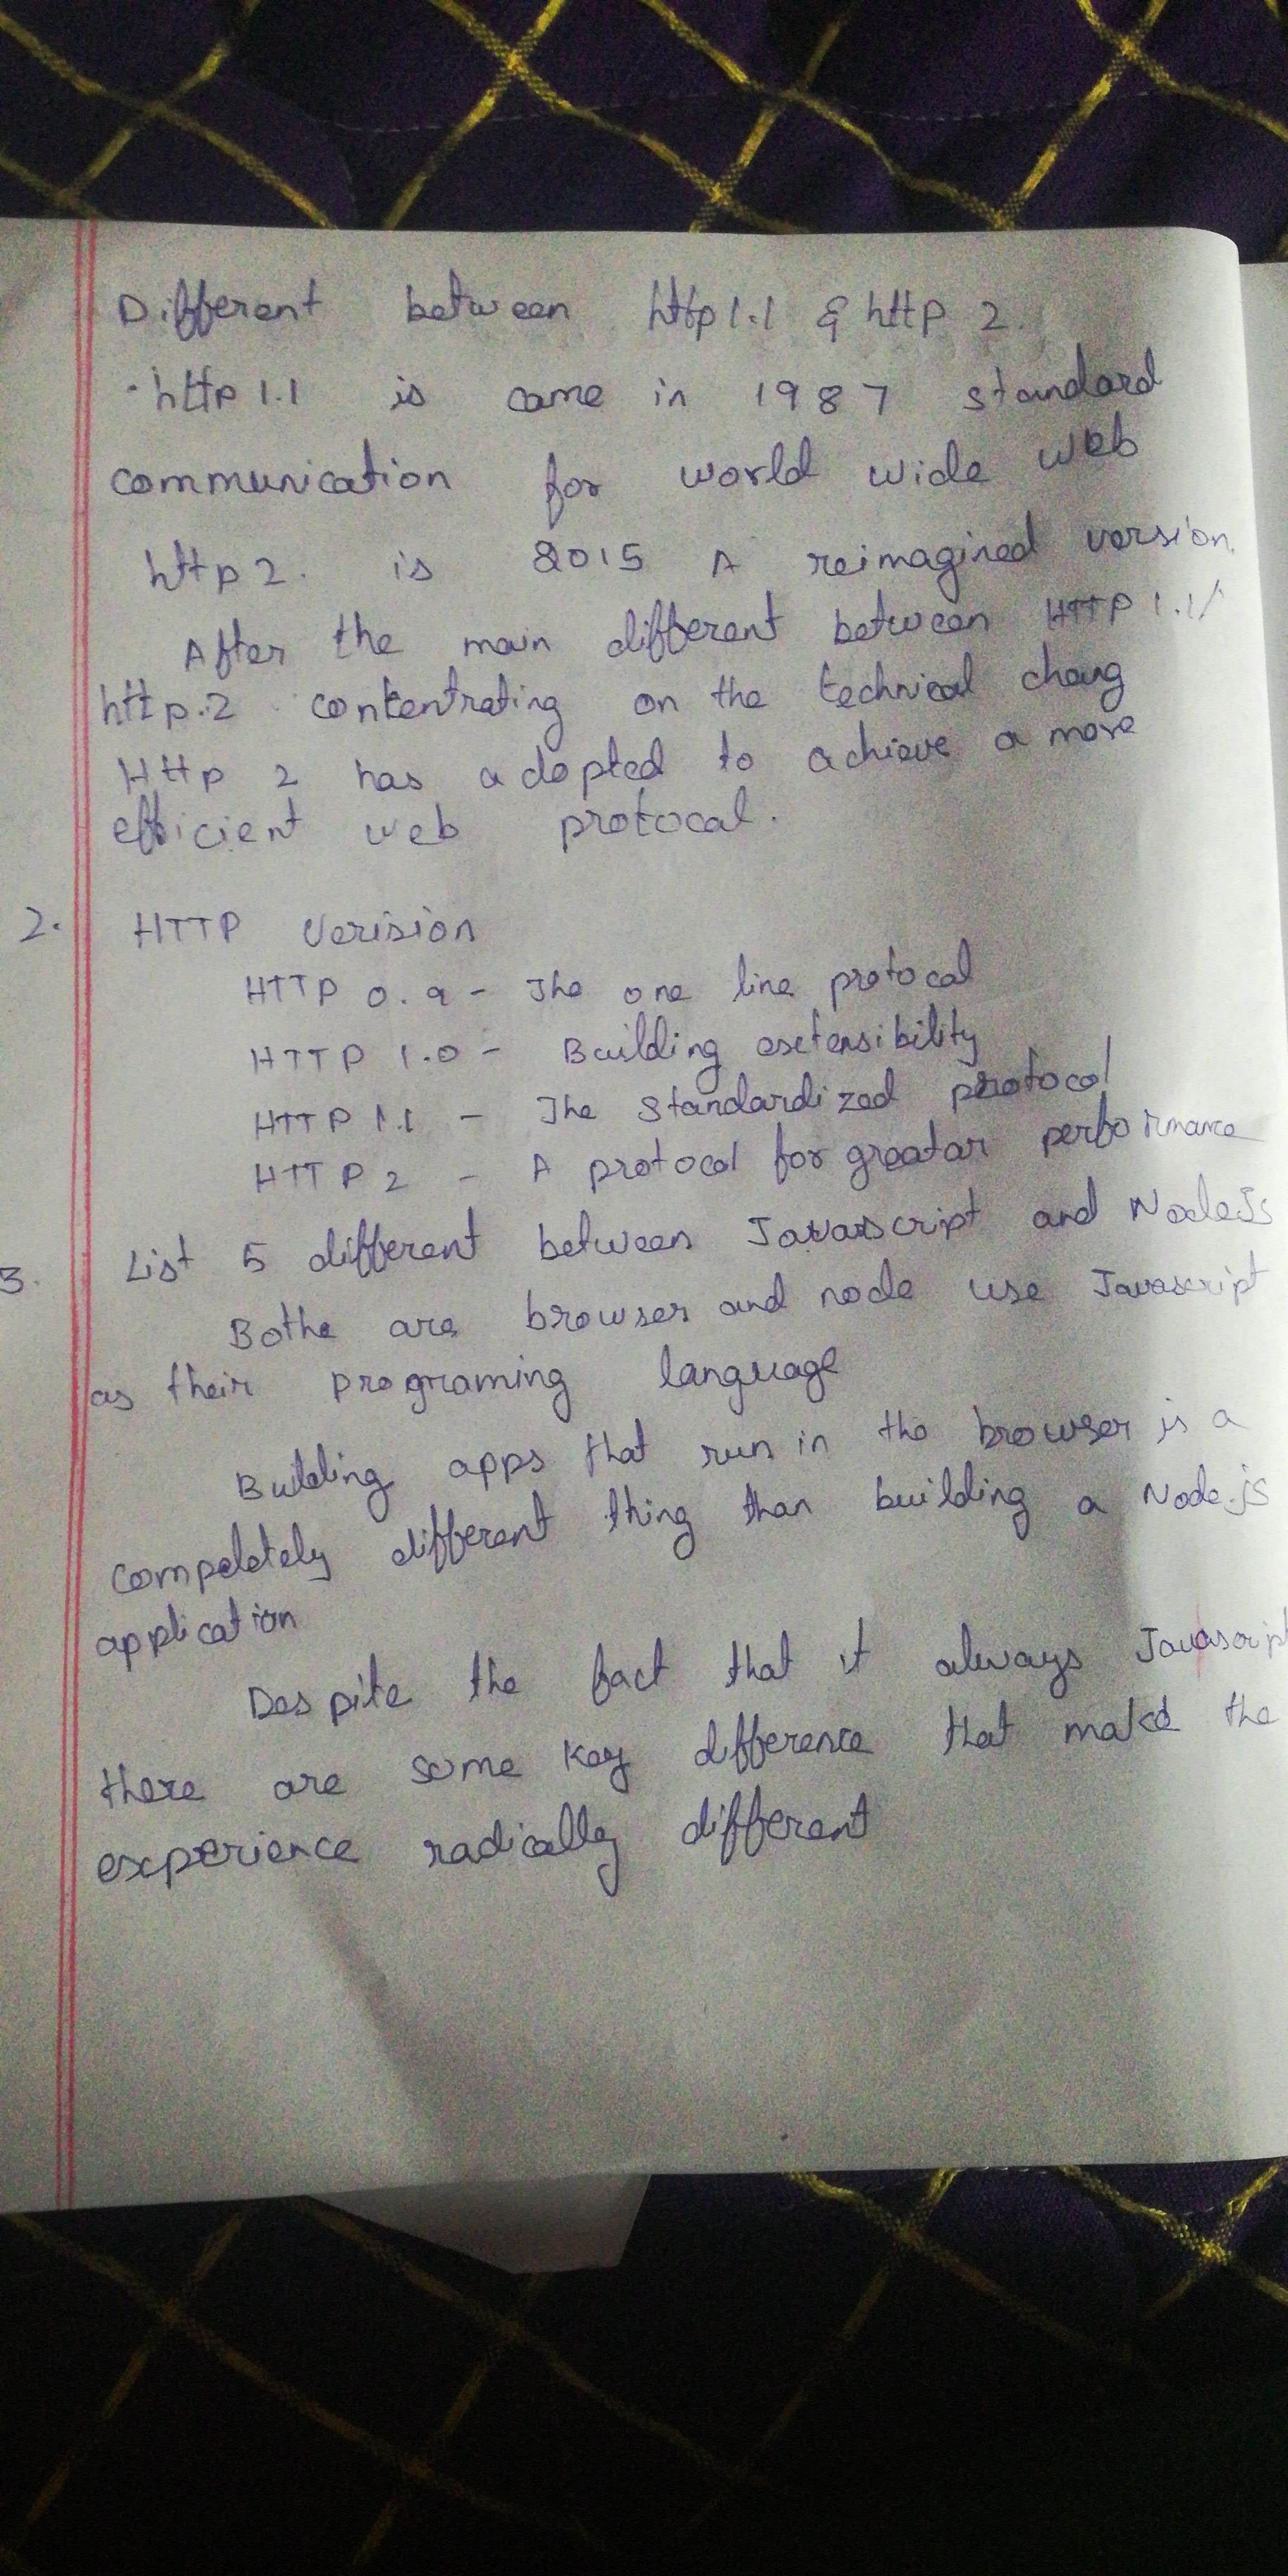 Different between http 1.1 & http 2.
· http 1.1 is came in 1987 standard
communication for world wide web
http 2. is 2015 A reimagined version
After the main different between HTTP 1.1/
http.2 contentrating on the technical chang
Http 2 has adopted to achieve a more
efficient web protocal.
2. HTTP Verision
HTTP 0.9 - The one line protocal
HTTP 1.0 - Building esctensibility
HTTP 1.1 - The Standardized protocol
HTTP 2 - A protocol for greatar performance
3. List 5 different between Javascript and NodeJs
Bothe are browser and node use Javascript
as their programing language
Building apps that run in the browser is a
compeletely different thing than building a Node.js
application
Despite the fact that it always Javascript
there are some key difference that make the
experience radically different